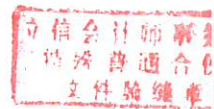 立信会计师事务
所(特殊普通合伙
文件骑缝章